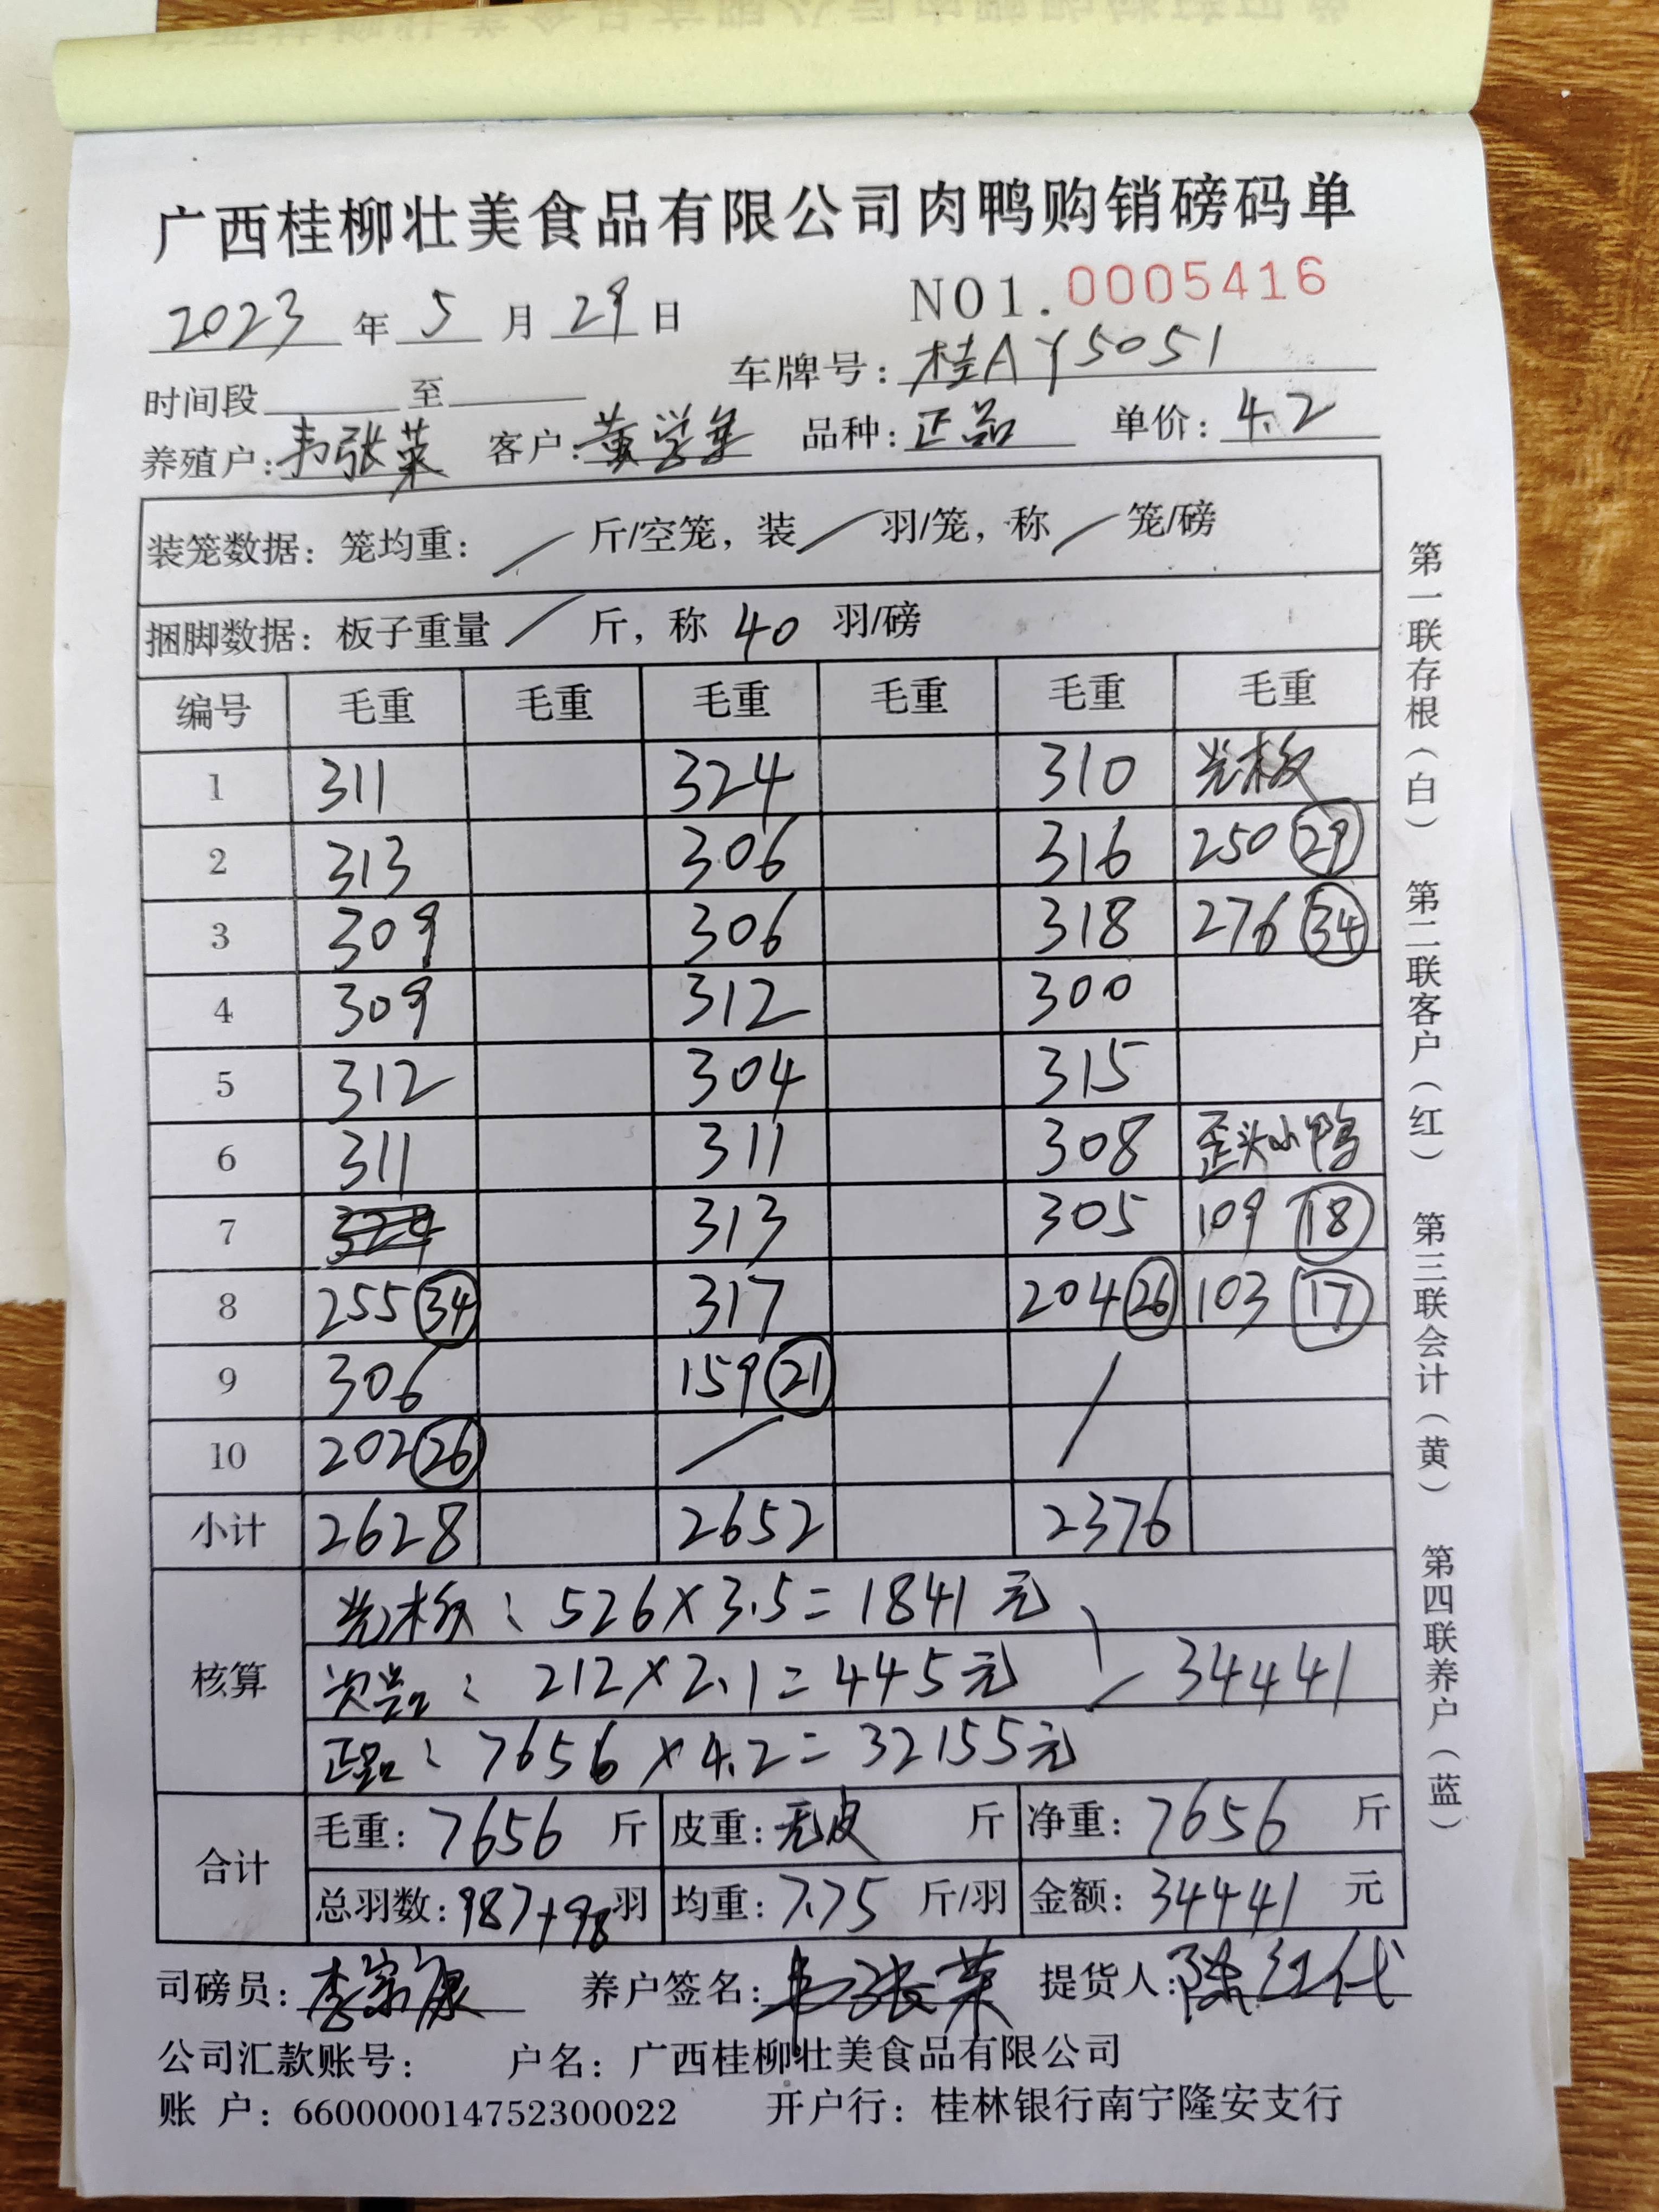 广西桂柳壮美食品有限公司肉鸭购销磅码单
2023 年 5 月 29 日 NO1. 0005416
时间段 至 车牌号: 桂AY5051
养殖户: 韦张荣 客户: 黄学 品种: 正品 单价: 4.2
装笼数据: 笼均重: / 斤/空笼, 装 / 羽/笼, 称 / 笼/磅
捆脚数据: 板子重量 / 斤, 称 40 羽/磅
编号 毛重 毛重 毛重 毛重 毛重 毛重
1 311 324 310 光板
2 313 306 316 250 29
3 309 306 318 276 34
4 309 312 300
5 312 304 315
6 311 311 308 歪头小鸭
7 324 313 305 109 18
8 255 34 317 204 26 103 17
9 306 159 21 /
10 202 26 / /
小计 2628 2652 2376
核算
光板: 526×3.5=1841元
次品: 212×2.1=445元 34441
正品: 7656×4.2=32155元
合计
毛重: 7656 斤 皮重: 无皮 斤 净重: 7656 斤
总羽数: 987+98 羽 均重: 7.75 斤/羽 金额: 34441 元
司磅员: 李宗康 养户签名: 韦张荣 提货人: 陈红代
公司汇款账号: 户名: 广西桂柳壮美食品有限公司
账 户: 660000014752300022 开户行: 桂林银行南宁隆安支行
第一联存根(白) 第二联客户(红) 第三联会计(黄) 第四联养户(蓝)